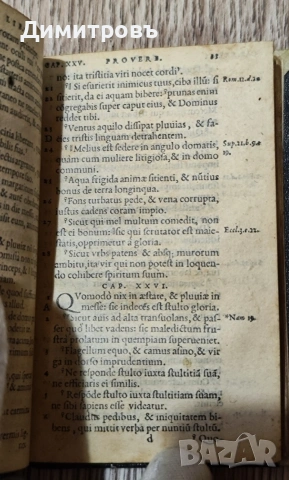 Димитровъ
CAP. XXV. PROVERB. 81
no: ita tristitia viri nocet cordi
Si esurierit inimicus tuus, ciba illum: si Rom. 12. d. 20
sitierit, da ei aquam bibere: prunas enim
congregabis super caput eius, & Dominus
reddet tibi.
Ventus aquilo dissipat pluuias, & fa-
cies tristis linguam detrahentem.
Melius est sedere in angulo domatis, Sup. 21. b. 9.
quam cum muliere litigiosa, & in domo 19.
communi.
Aqua frigida animæ sitienti, & nūtius
bonus de terra longinqua.
Fons turbatus pede, & vena corrupta,
iustus cadens coram impio.
Sicut qui mel multum comedit, non
est ei bonum: sic qui scrutator est maie- Eccl. 3. c. 22.
statis, opprimetur à gloria.
Sicut vrbs patens & absq; murorum
ambitu, ita vir qui non potest in loquen-
do cohibere spiritum suum.
CAP. XXVI.
QVomodo nix in æstate, & pluuiæ in
messe: sic indecēs est stulto gloria.
Sicut auis ad alta transuolans, & pas-
ser quò libet vadens: sic maledictum fru-
stra prolatum in quempiam superueniet.
Flagellum equo, & camus asino, & vir-
ga in dorso imprudentium.
Ne respondeas stulto iuxta stultitiā suā, ne
efficiaris ei similis.
Respōde stulto iuxta stultitiam suam,
ne sibi sapiens esse videatur.
Claudus pedibus, & iniquitatem bi-
bens, qui mittit verba per nuntiū stultū.
d
БАЗАР